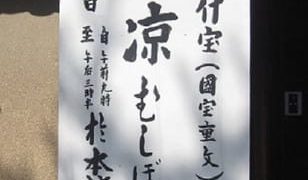 什宝(國宝重文)
凉むしぼ
自午前九時
至午后三時半
於本